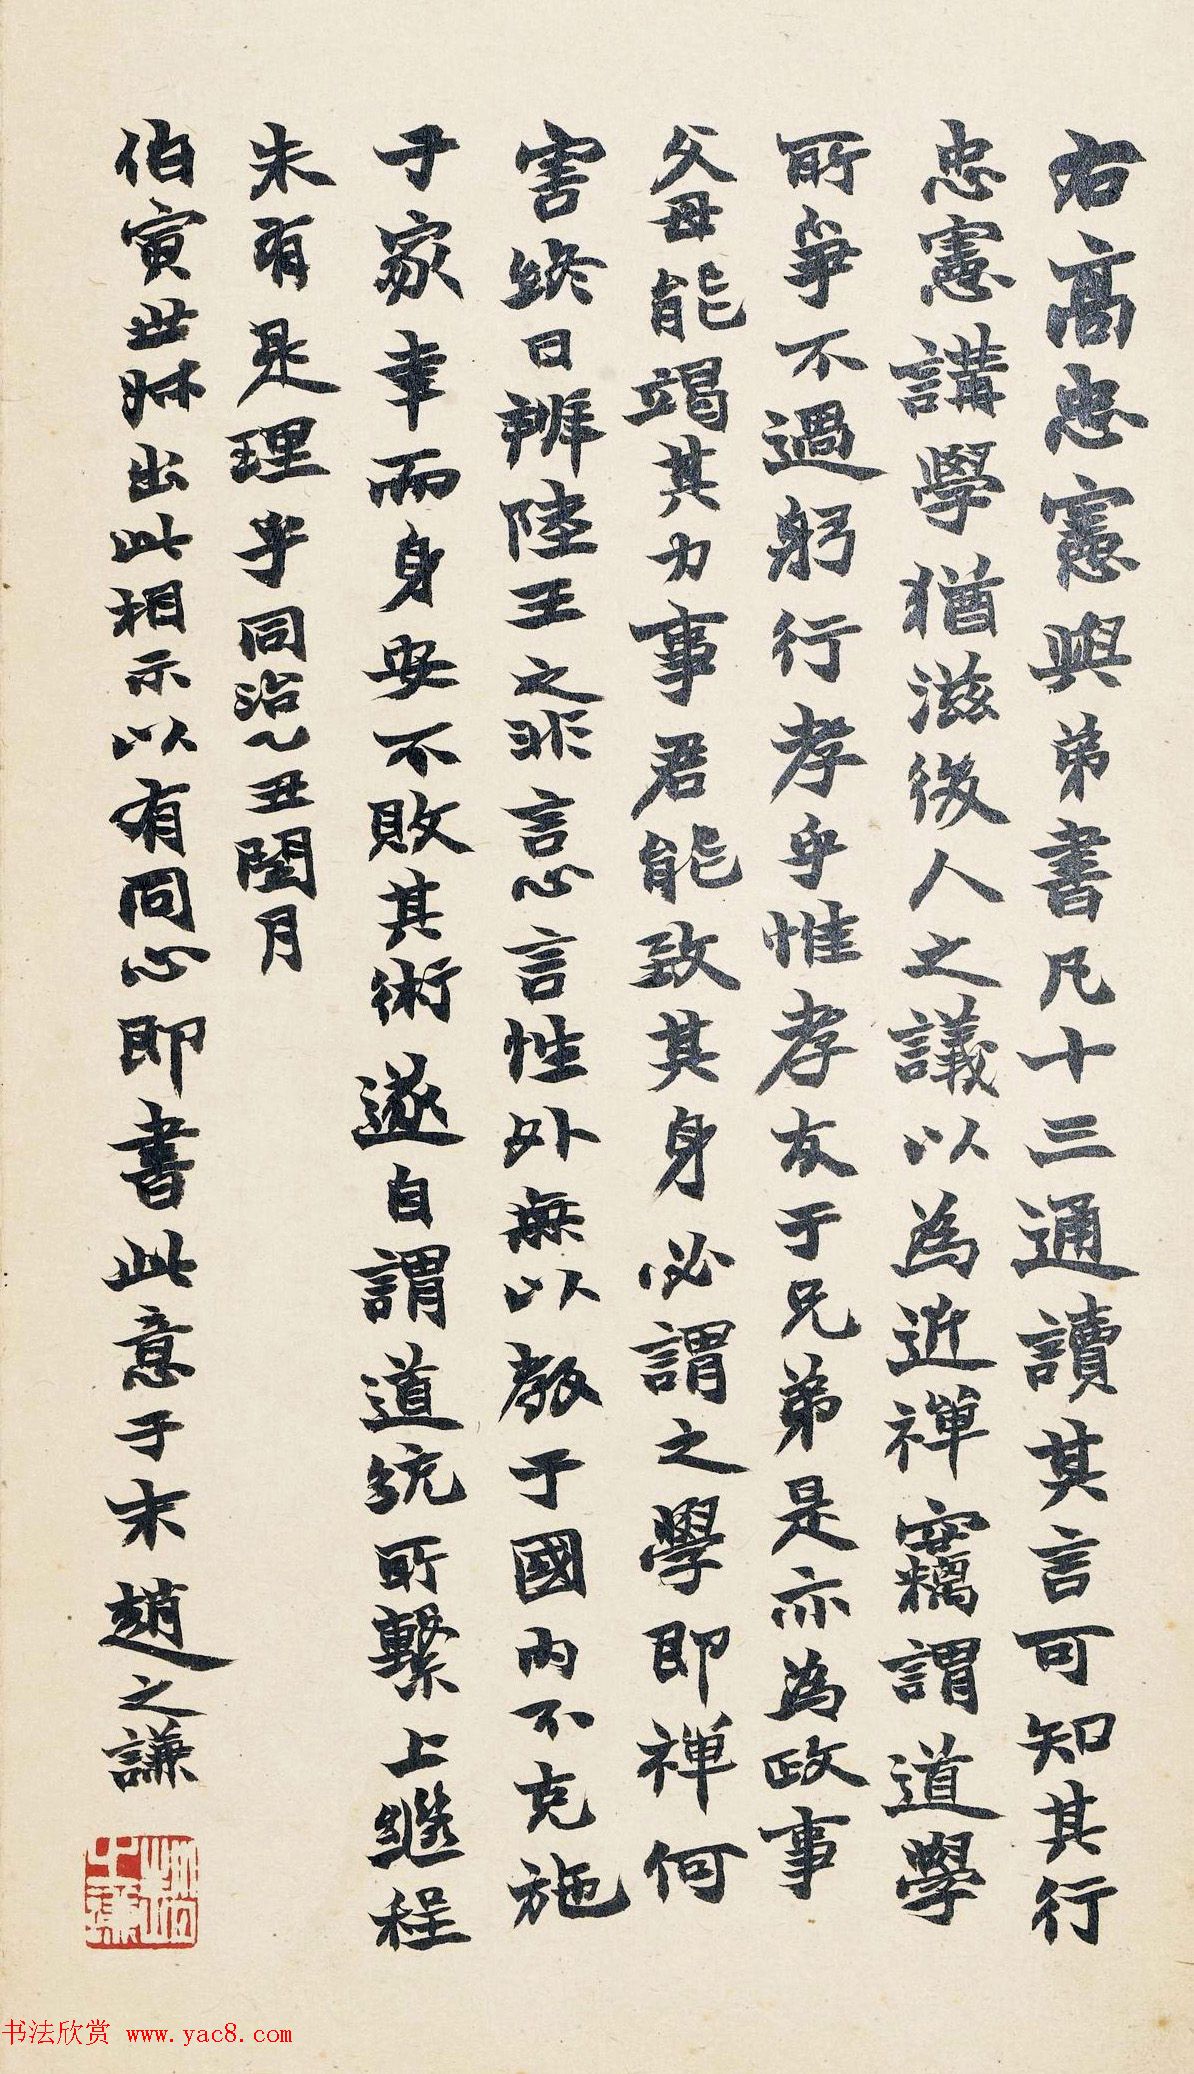 右高忠憲與弟書凡十三通讀其言可知其行
忠憲講學猶滋後人之議以為近禪竊謂道學
所爭不過躬行孝乎惟孝友于兄弟是亦為政事
父母能竭其力事君能致其身必謂之學即禪何
害終日辨陸王之非言心言性外無以教于國內不克施
于家幸而身安不敗其術遂自謂道統所繫上繼程
朱有是理乎同治乙丑閏月
伯寅世叔出此相示以有同心即書此意于末趙之謙
书法欣赏 www.yac8.com